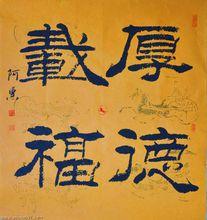 厚德
載福
阿